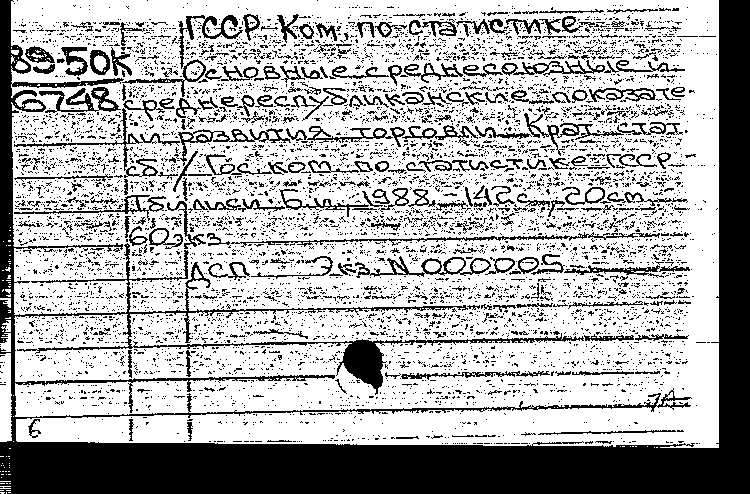 ГССР Ком. по статистике
89-50к Основные среднесоюзные и
6748 среднереспубликанские показате-
ли развития торговли. Крат. стат.
сб. / Гос. ком. по статистике ГССР
Тбилиси: Б.и., 1988. - 142с., 20см.
60экз.
ДСП. Экз. N 000005
6